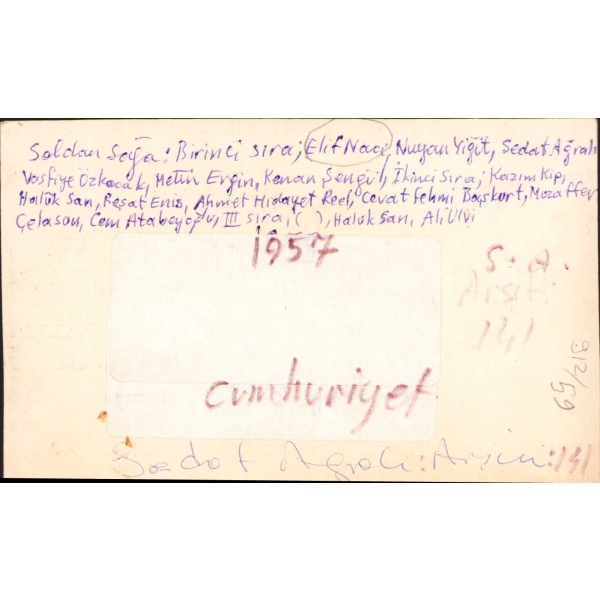 Soldan Sağa: Birinci sıra; Elif Naci, Nuyan Yiğit, Sedat Ağralı
Vasfiye Özkoçak, Metin Ergin, Kenan Şengül, İkinci Sıra; Kazım Kip,
Halûk San, Reşat Enis, Ahmet Hidayet Reel, Cevat Fehmi Başkurt, Mozaffer
Çelasun, Cem Atabeyoğu, III sıra, ( ), Halûk San, Ali Ulvi
1957
S. A.
Arşif:
141
912/59
Cumhuriyet
Sedat Ağralı: Arşivi: 141